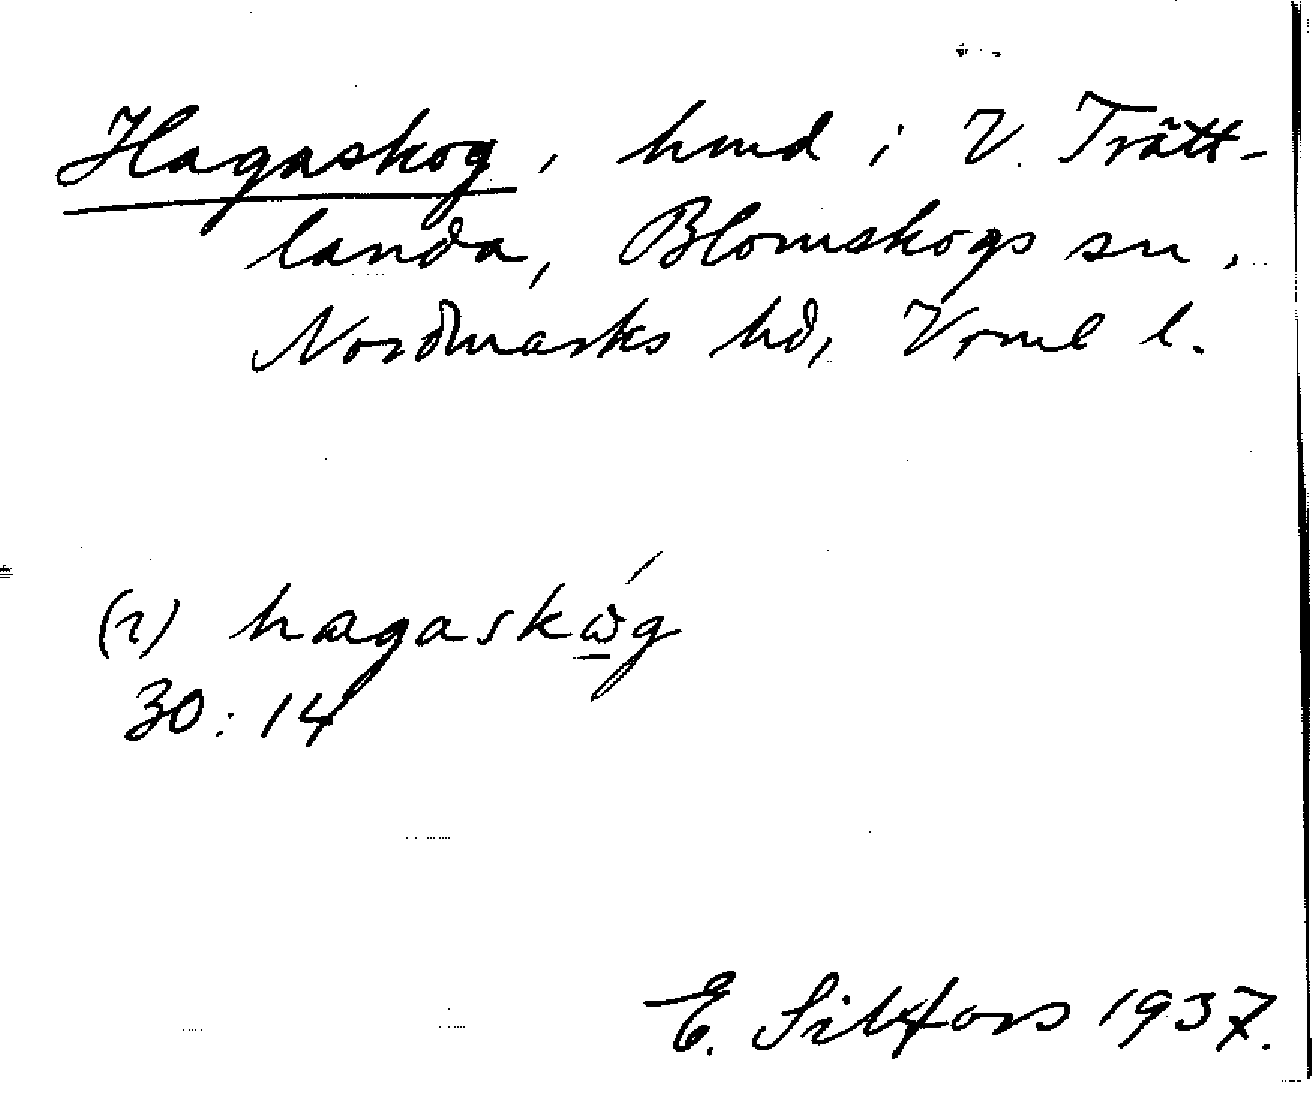 Hagaskog, hmd i V. Trätt-
landa, Blomskogs sn,
Nordmarks hd, Vrml l.
(1) hagaskωg
30:14
E. Silfors 1937.